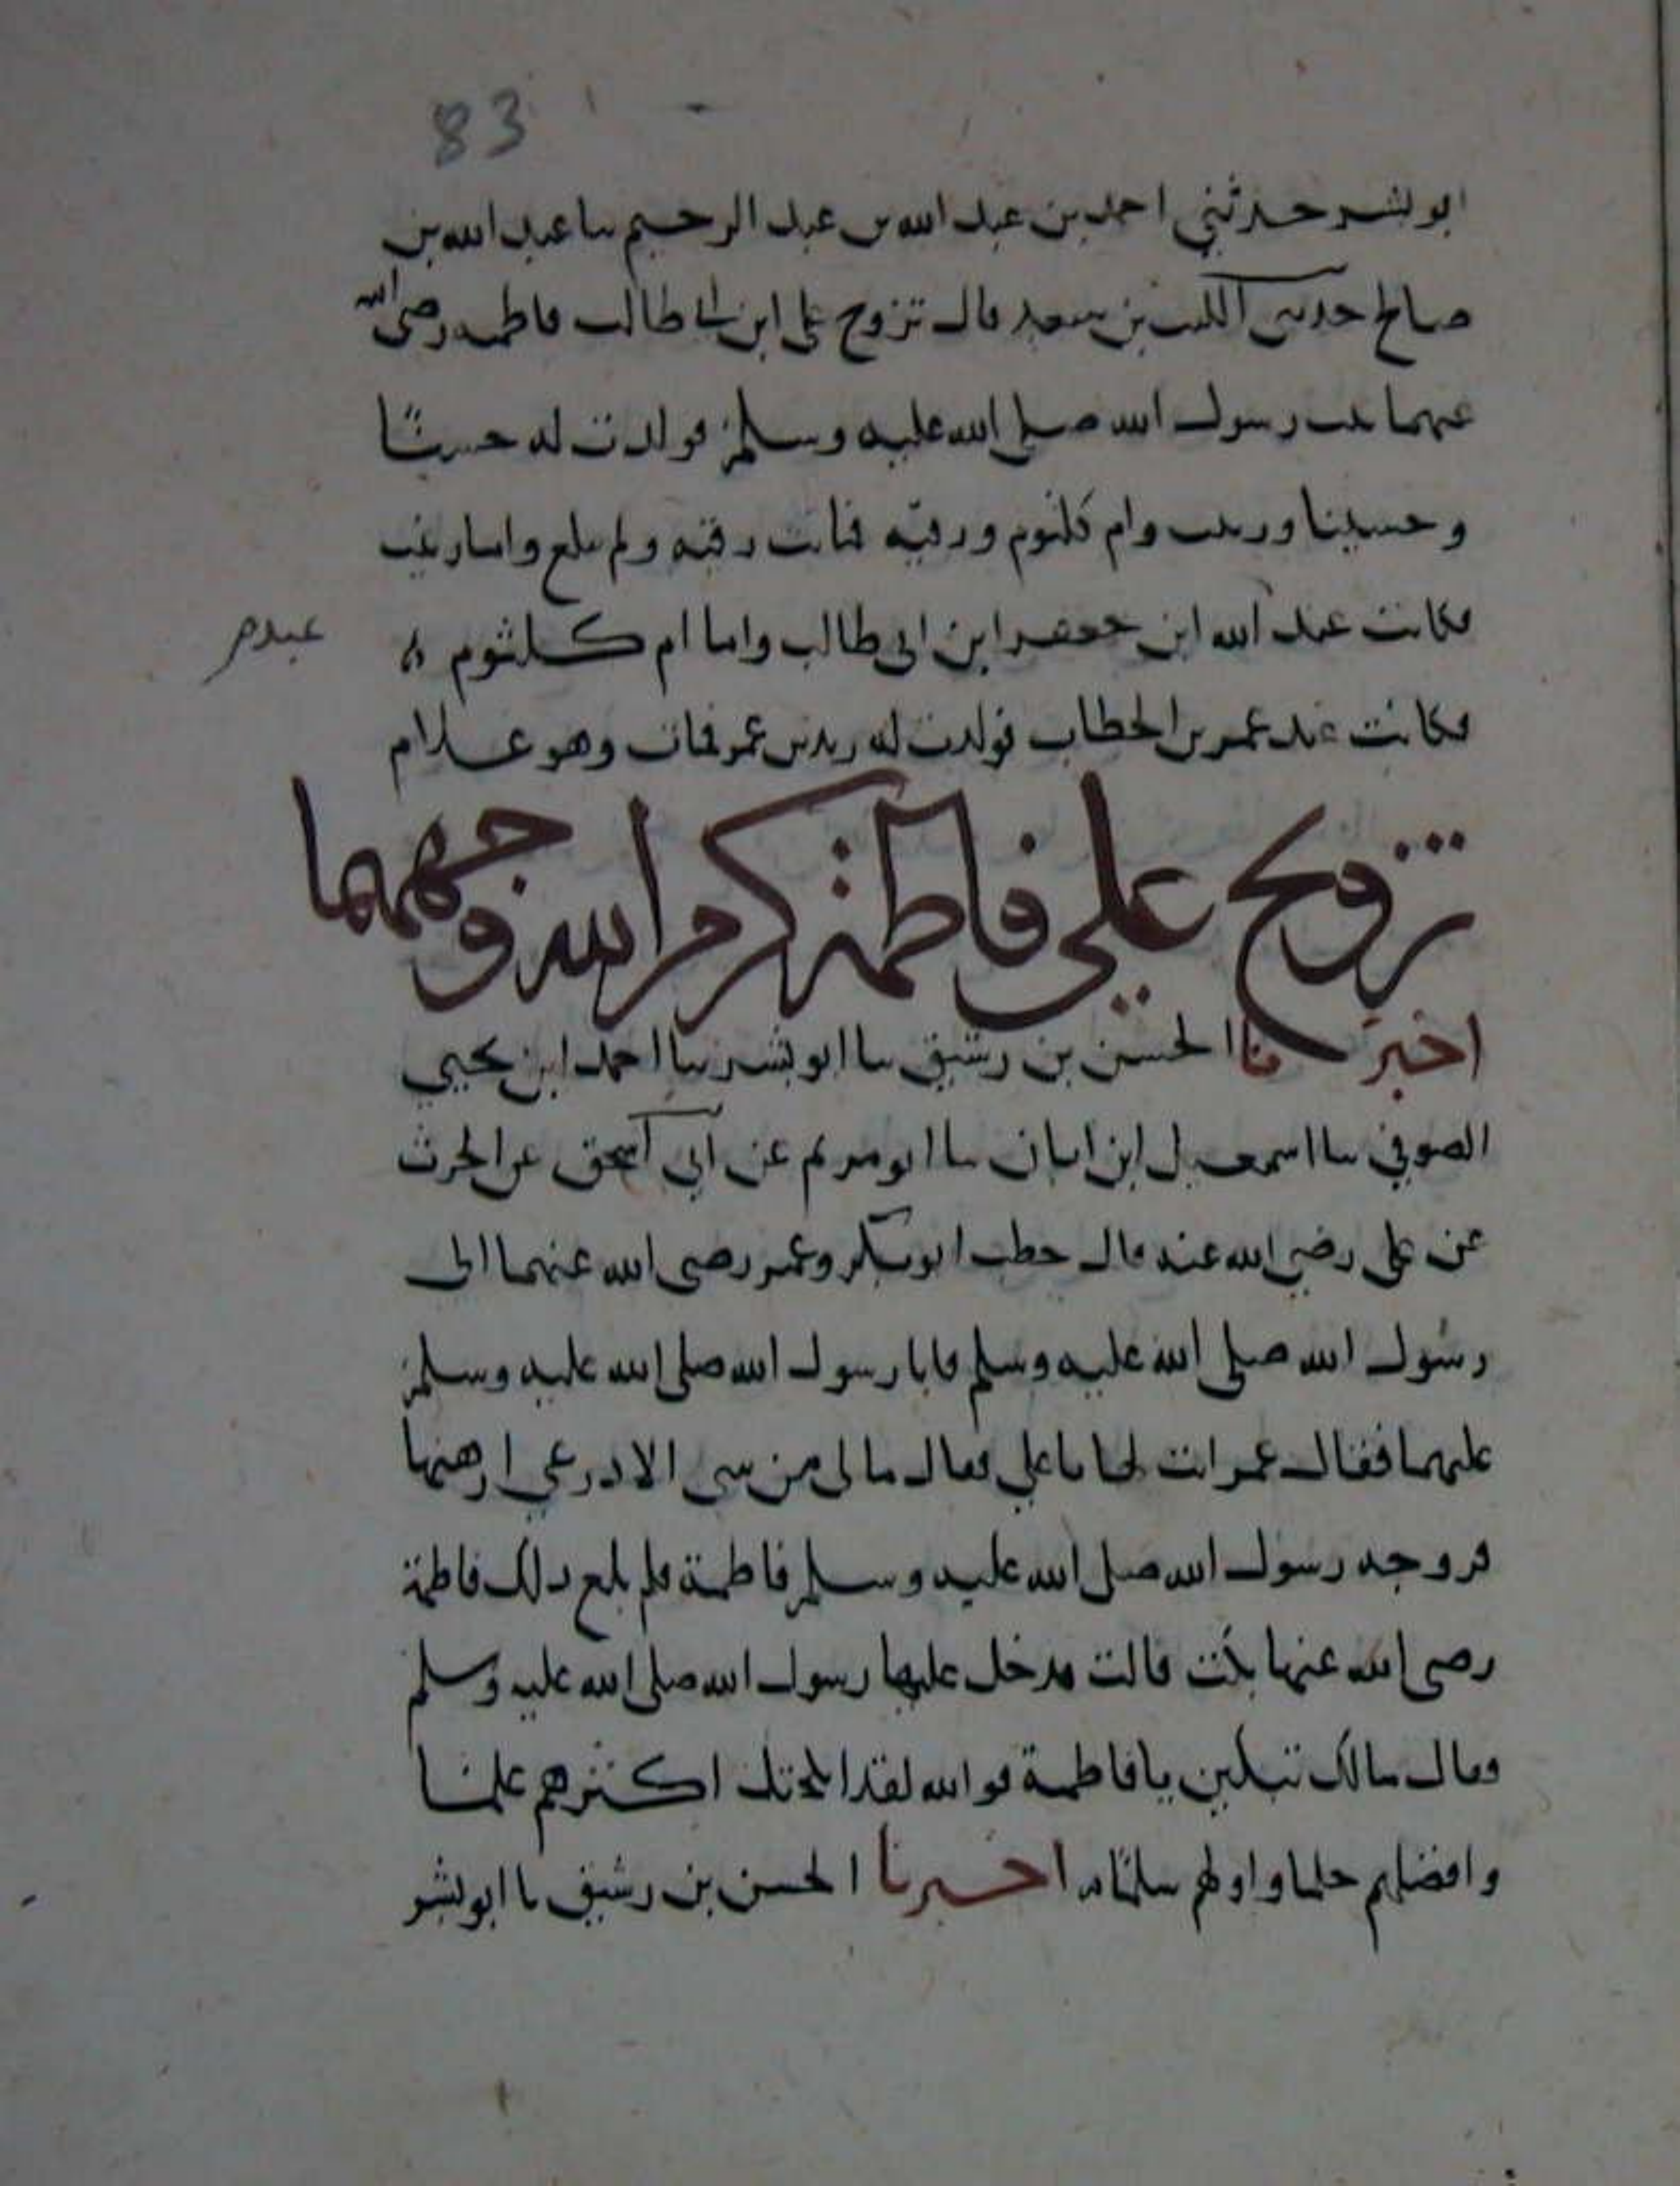 83
ابو بشر حدثني احمد بن عبد الله بن عبد الرحيم سا عبد الله بن
صالح حدثني الليث بن سعد قال تزوج علي ابن ابي طالب فاطمه رضي الله
عنهما بنت رسول الله صلى الله عليه وسلم فولدت له حسنا
وحسينا وزينب وام كلثوم ورقيه فماتت رقيه ولم تبلغ واما زينب
فكانت عند الله ابن جعفر ابن ابي طالب واما ام كلثوم
عبد
فكانت عند عمر بن الخطاب فولدت له زيد بن عمر فمات وهو غلام
تزويج علي فاطمة كرم الله وجههما
اخبرنا الحسن بن رشيق سا ابو بشر سا احمد ابن يحيى
الصوفي سا اسمعيل ابن ابان سا ابو مريم عن ابي اسحق عن الحرث
عن علي رضي الله عنه قال خطب ابو بكر وعمر رضي الله عنهما الى
رسول الله صلى الله عليه وسلم فابا رسول الله صلى الله عليه وسلم
عليهما فقال عمر انت لها يا علي فقال مالي من شي الا درعي ارهنها
فزوجه رسول الله صلى الله عليه وسلم فاطمة فلم بلغ ذلك فاطمة
رضي الله عنها بكت قالت فدخل عليها رسول الله صلى الله عليه وسلم
وقال مالك تبكين يا فاطمة فوالله لقد انكحتك اكثرهم علما
وافضلهم حلما واولهم سلما اخبرنا الحسن بن رشيق نا ابو بشر